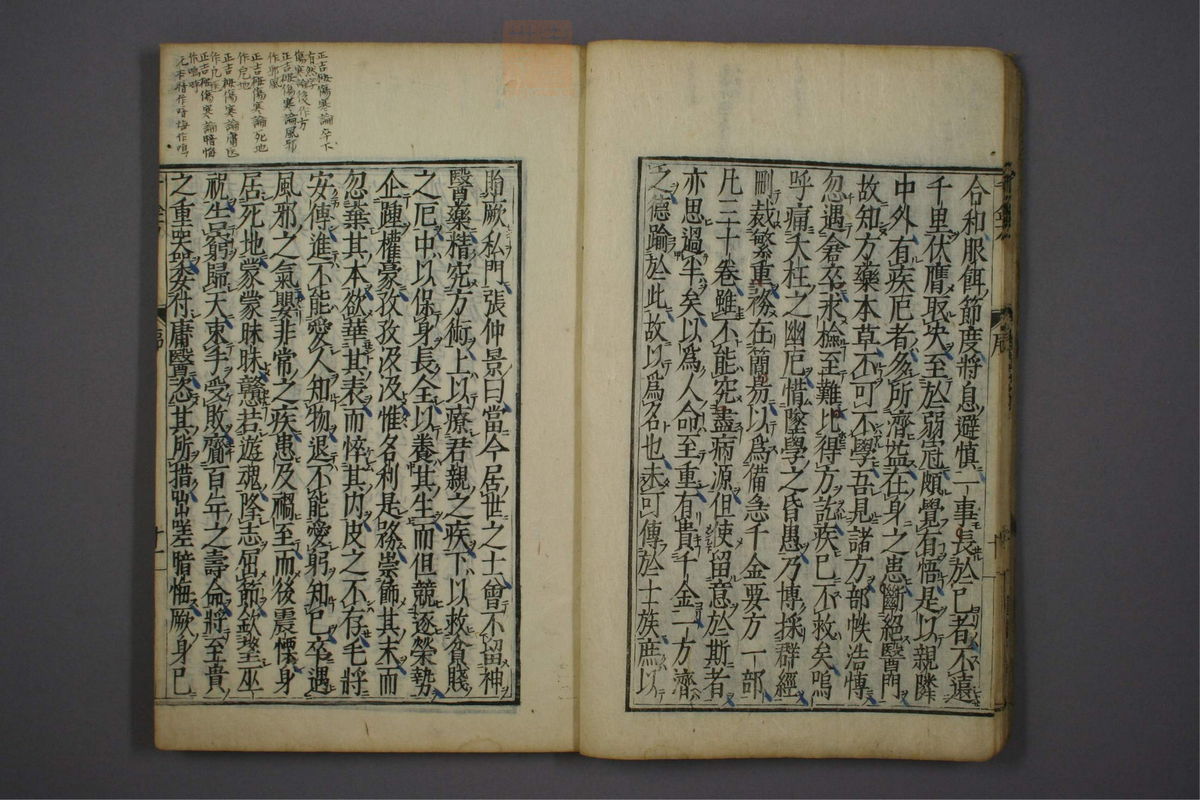 合和服餌節度將息避愼一事長於已者不遠
千里伏膺取決至於弱冠頗覺有悟是以親隣
中外有疾厄者多所濟益在身之患斷絕醫門
故知方藥本草不可不學吾見諸方部帙浩愽
忽遇倉卒求檢至難比得方訖疾已不救矣嗚
呼痛夭枉之幽厄惜墜學之昏愚乃博採群經
刪裁繁重務在簡易以爲備急千金要方一部
凡三十卷雖不能究盡病源但使留意於斯者
亦思過半矣以爲人命至重有貴千金一方濟
之德踰於此故以爲名也未可傳於士族庶以
貽厥私門張仲景曰當今居世之士曾不留神
醫藥精究方術上以療君親之疾下以救貧賤
之厄中以保身長全以養其生而但競逐榮勢
企踵權豪孜孜汲汲惟名利是務崇飾其末而
忽棄其本欲華其表而悴其內皮之不存毛將
安傅進不能愛人知物退不能愛躬知已卒遇
風邪之氣嬰非常之疾患及禍至而後震慄身
居死地蒙蒙昧昧戇若遊魂降志屈節欽望巫
祝告窮歸天束手受敗齎百年之壽命將至貴
之重器委付庸醫恣其所措咄嗟暗悔厥身已
序
十一
正吉短傷寒論卒下
有然字
傷寒論後作方
正吉短傷寒論風邪
作邪風
正吉短傷寒論死地
作厄地
正吉短傷寒論庸医
作凡医
正吉短傷寒論暗悔
作嗚呼